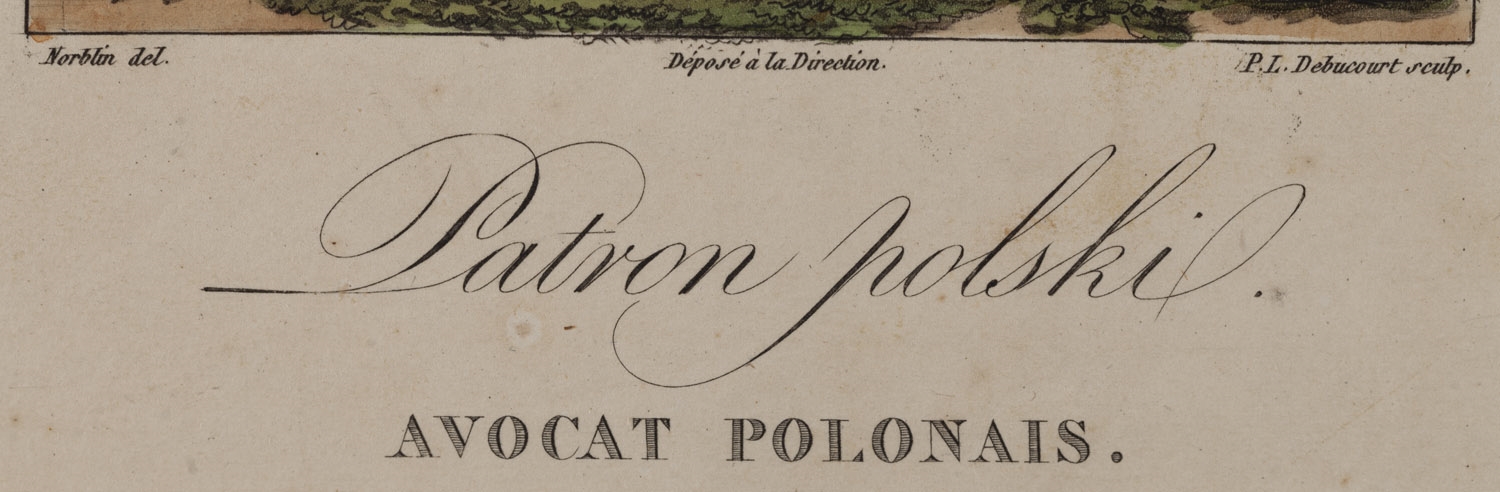 Norblin del. Déposé à la Direction. P. L. Debucourt sculp.
Patron polski.
AVOCAT POLONAIS.